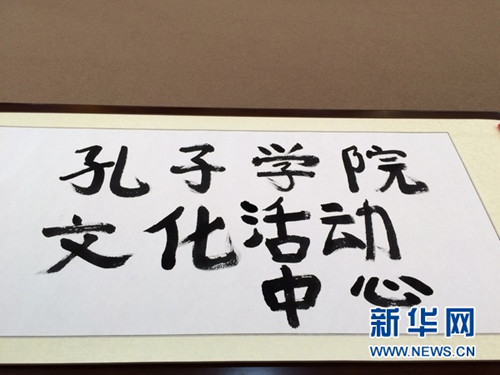 孔子学院
文化活动
中心
新华网
WWW.NEWS.CN